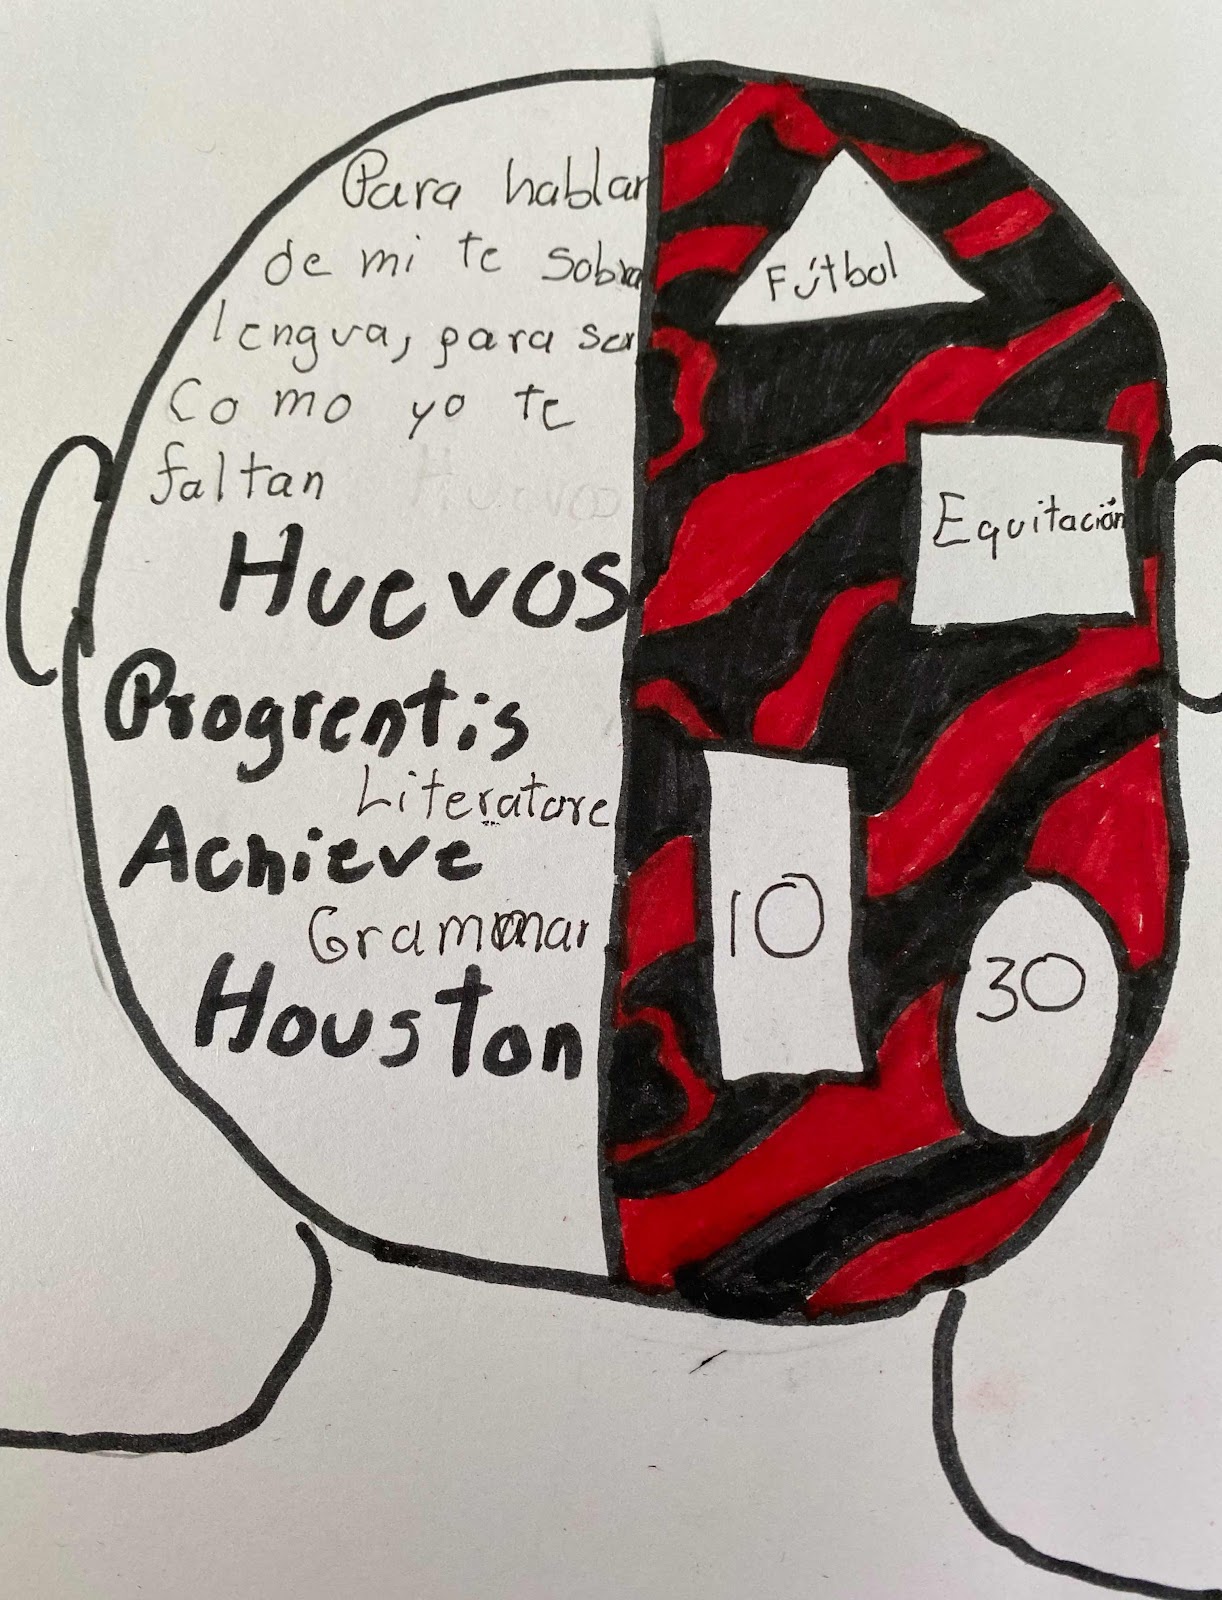 Para hablar
de mi te sobra
lengua, para ser
Como yo te
faltan
Huevos
Huevos
Progrentis
Literature
Achieve
Grammar
Houston
Fútbol
Equitación
10
30